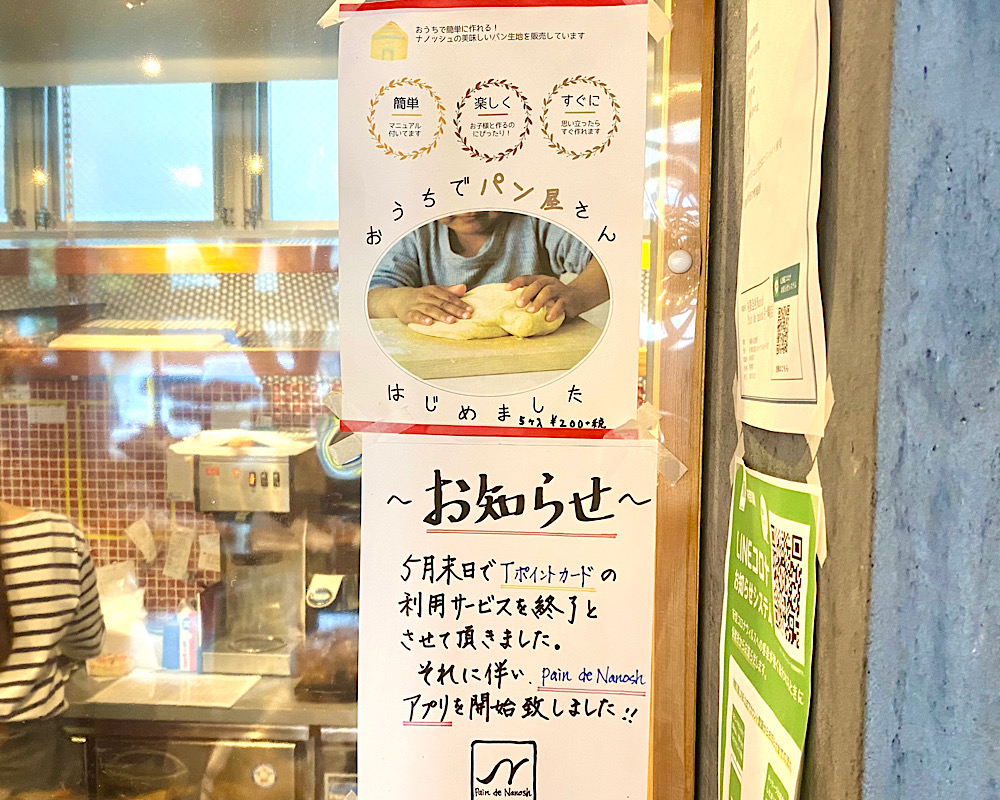 おうちで簡単に作れる！
ナノッシュの美味しいパン生地を販売しています
簡単
マニュアル
付いてます
楽しく
お子様と作るの
にぴったり！
すぐに
思い立ったら
すぐ作れます
おうちでパン屋さん
はじめました
5ヶ入 ¥200+税
～お知らせ～
5月末日でTポイントカードの
利用サービスを終了と
させて頂きました。
それに伴い、Pain de Nanosh
アプリを開始致しました!!
Pain de Nanosh
LINEコロナ
お知らせシステム